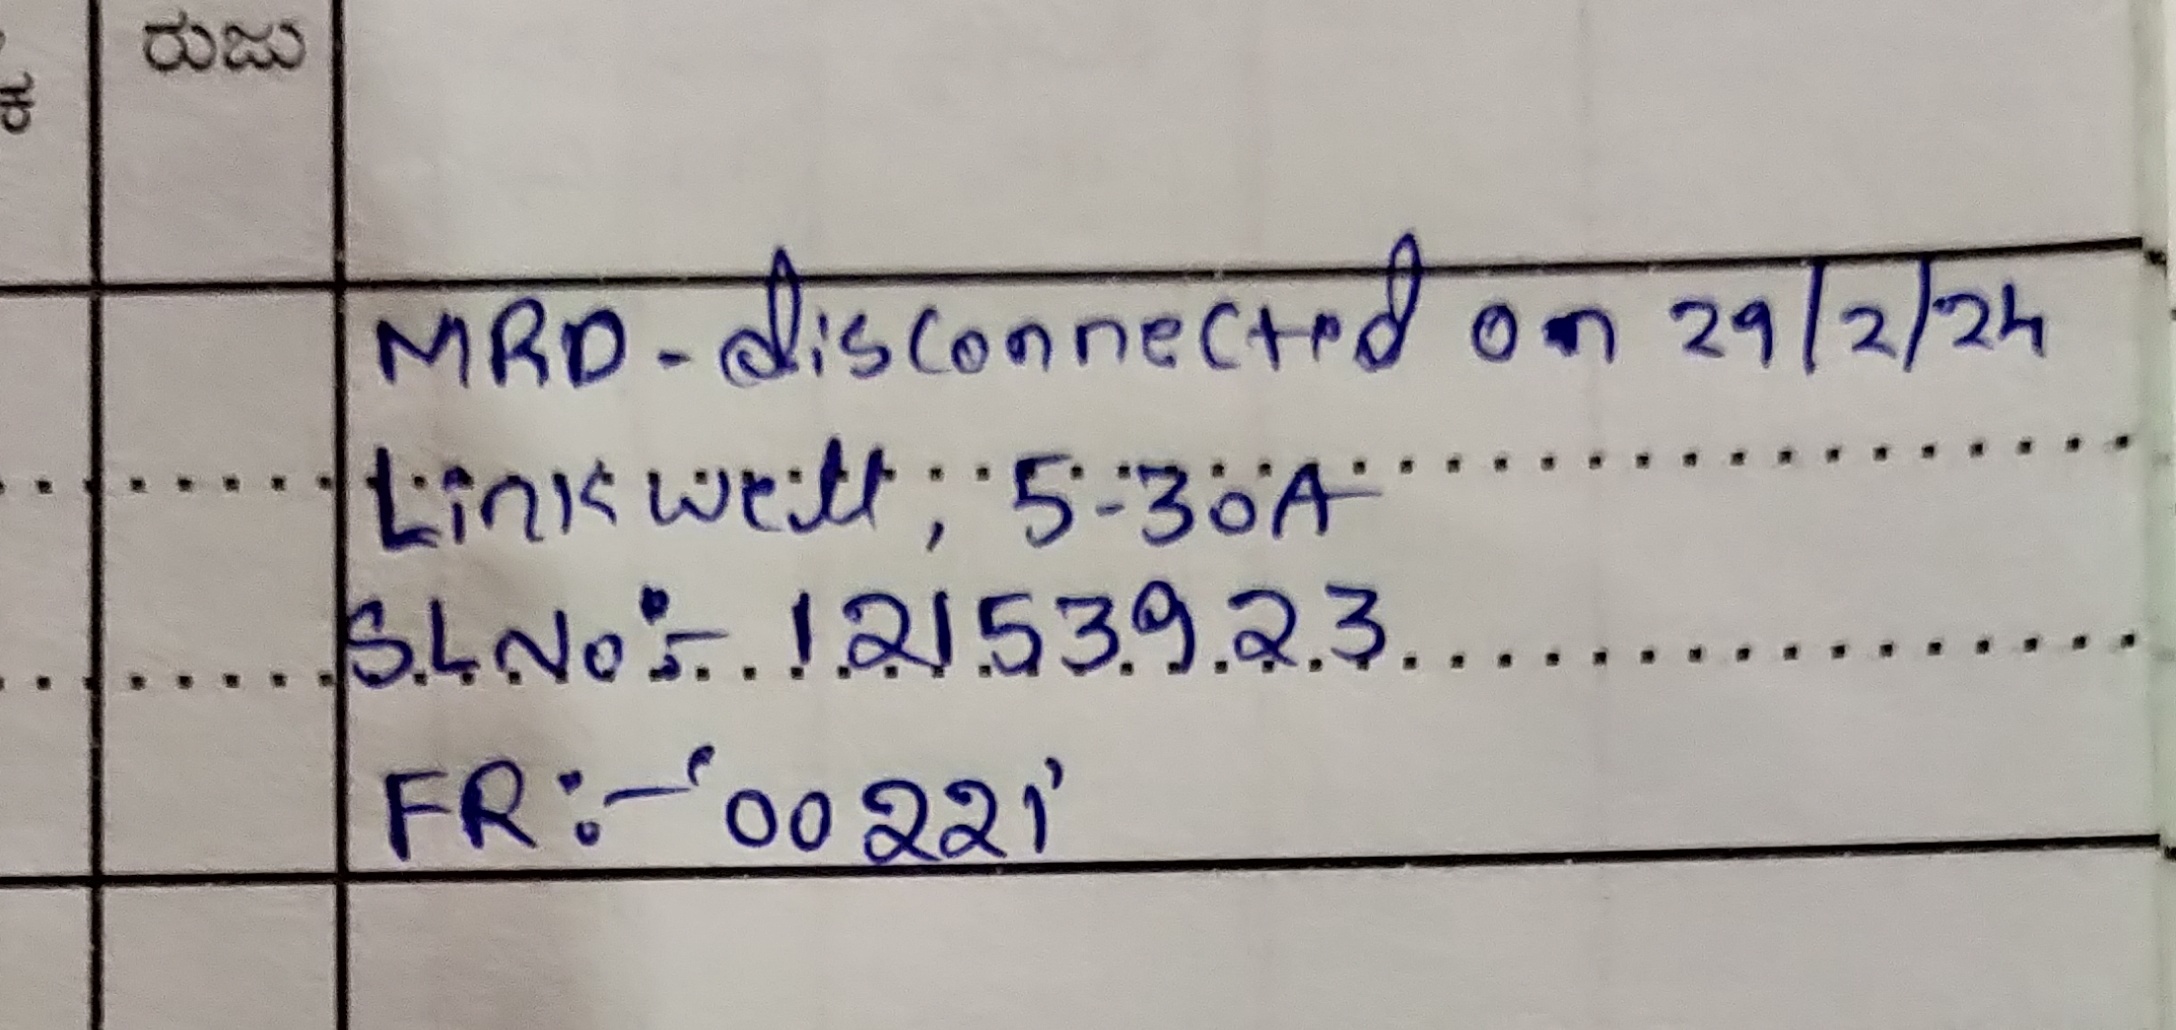 ರುಜು
MRD - disconnected on 29/2/24
Linkwell, 5-30A
S.L.No:- 12153923
FR:- '00221'